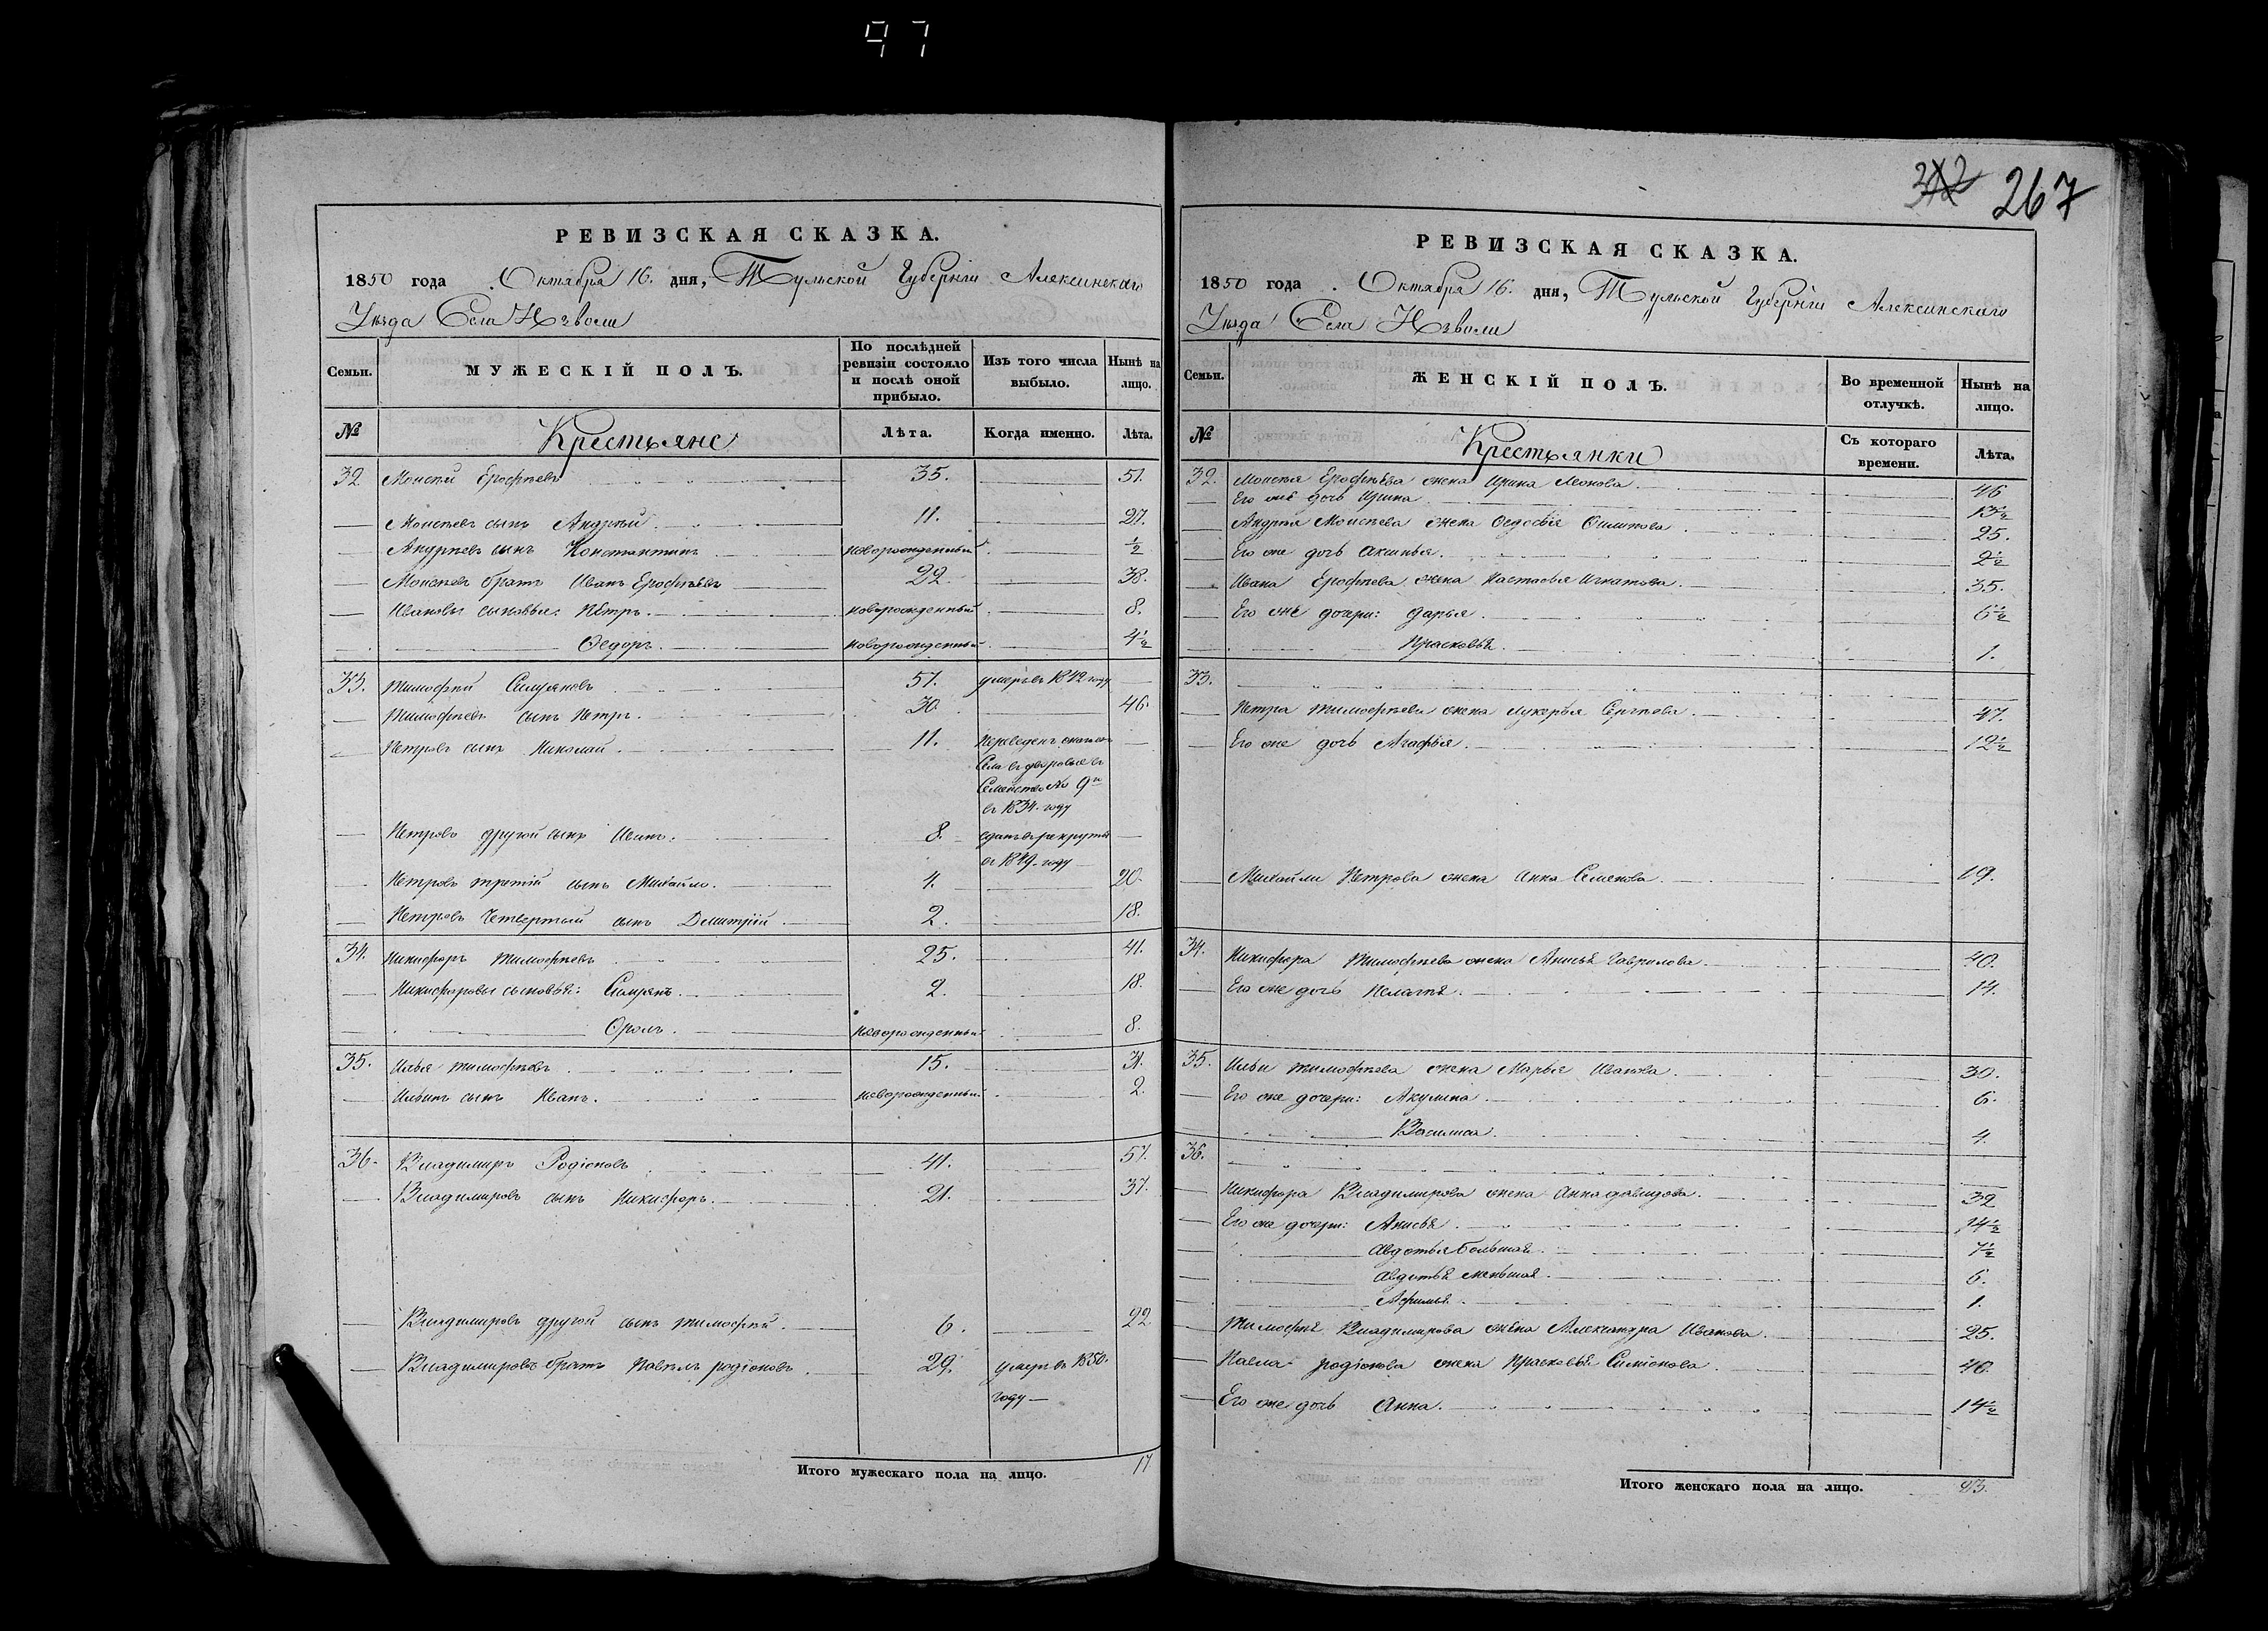 97
РЕВИЗСКАЯ СКАЗКА.
1850 года Октября 16. дня, Тульской Губерніи Алексинскаго
Уѣзда Села Изволи
Семьи. МУЖЕСКІЙ ПОЛЪ. По послѣдней ревизіи состояло и послѣ оной прибыло. Изъ того числа выбыло. Нынѣ на лицо.
№ Крестьяне Лѣта. Когда именно. Лѣта.
32 Моисей Ерофѣевъ 35. 51.
Моисѣевъ сынъ Андрѣй 11. 27.
Андрѣевъ сынъ Константинъ новорожденный ½
Моисѣевъ братъ Иванъ Ерофѣевъ 22. 38.
Ивановы сыновья: Петръ новорожденный 8.
Ѳедоръ новорожденный 4½
33. Тимофѣй 57. умеръ въ 1842 году
Тимофѣевъ сынъ Петръ 30. 46.
Петровъ сынъ Николай 11. Переведенъ
Села въ дворовые въ
Семейство № 9й
въ 1834 году
Петровъ другой сынъ Иванъ. 8. сданъ въ рекруты
въ 1849 году
Петровъ третій сынъ Михайло. 4. 20.
Петровъ Четвертый сынъ Дмитрій 2. 18.
34. Никифоръ Тимофѣевъ 25. 41.
Никифоровы сыновья: 2. 18.
Фролъ новорожденный 8.
35. Илья Тимофѣевъ 15. 31.
Ильинъ сынъ Иванъ. новорожденный 2.
36. Владимиръ Родіоновъ 41. 57.
Владимировъ сынъ Никифоръ. 21. 37.
Владимировъ другой сынъ Тимофѣй. 6. 22
Владимировъ братъ Павелъ родіоновъ 29. умеръ въ 1850.
году
Итого мужескаго пола на лицо. 17
312 267
РЕВИЗСКАЯ СКАЗКА.
1850 года Октября 16. дня, Тульской Губерніи Алексинскаго
Уѣзда Села Изволи
Семьи. ЖЕНСКІЙ ПОЛЪ. Во временной отлучкѣ. Нынѣ на лицо.
№ Крестьянки Съ котораго времени. Лѣта.
32. Моисея Ерофѣева жена Ирина Леонова 46
Его же дочь Ирина 13½
Андрея Моисѣева жена Ѳедосья Филипова 25.
Его же дочь Аксинья. 2½
Ивана Ерофѣева жена Настасья Игнатова. 35.
Его же дочери: Дарья 6½
Прасковья 1.
33.
Петра Тимофѣева жена Лукерья Сергѣева 47.
Его же дочь Агафья 12½
Михайлы Петрова жена Анна Семенова 19.
34. Никифора Тимофѣева жена Анисья Гаврилова. 40.
Его же дочь Пелагея 14.
35. Ильи Тимофѣева жена Марья Иванова 30.
Его же дочери: Акулина 6.
Василиса 4.
36.
Никифора Владимирова жена Анна давидова. 32
Его же дочери: Анисья 14½
Авдотья большая 7½
Авдотья меньшая 6.
Афимья 1.
Тимофея Владимирова жена Александра Иванова 25.
Павла родіонова жена Прасковья Симіонова 40.
Его же дочь Анна. 14½
Итого женскаго пола на лицо. 23.